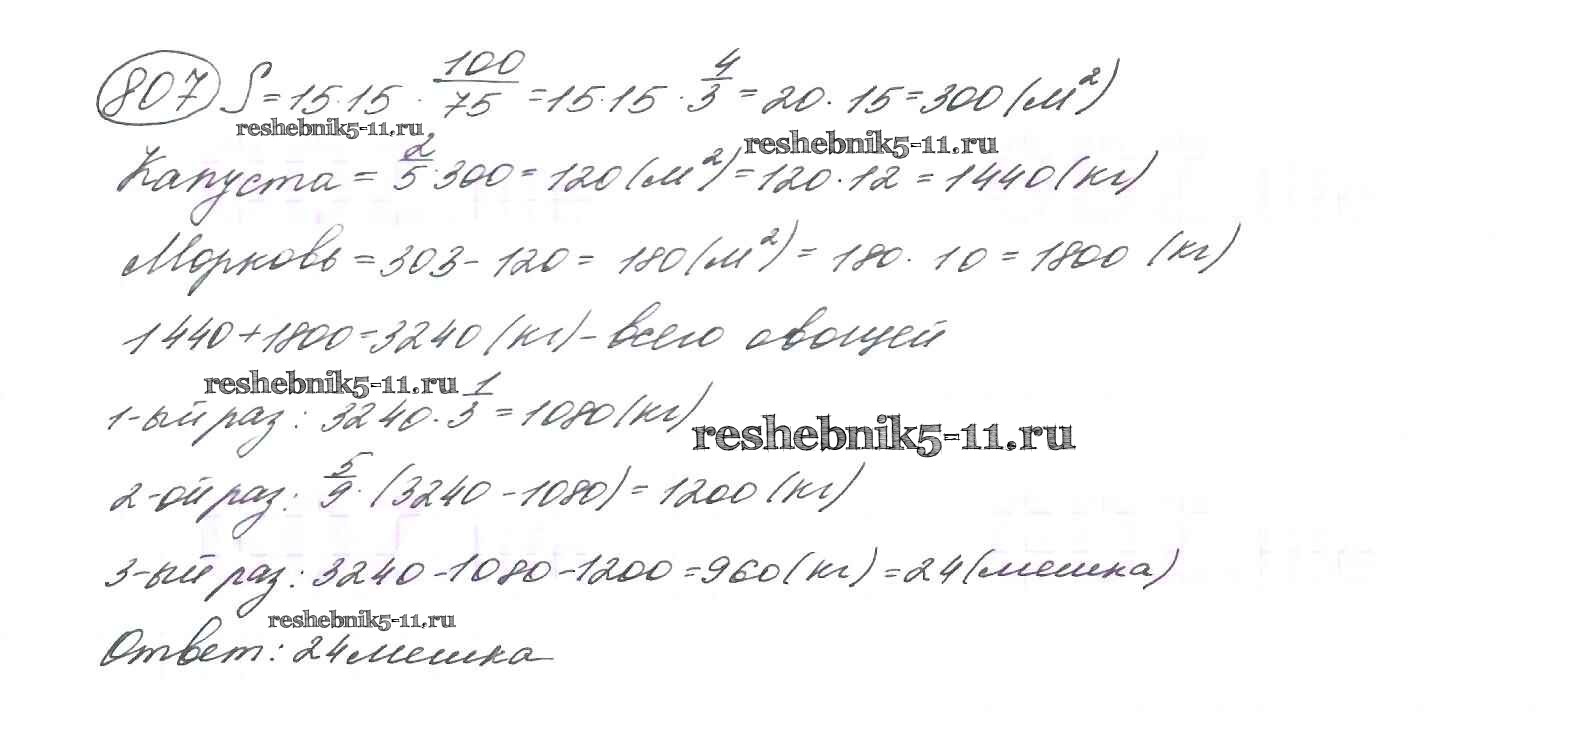 807 S = 15·15 · 100/75 = 15·15 · 4/3 = 20·15 = 300 (м²)
reshebnik5-11.ru
reshebnik5-11.ru
Капуста = 2/5 · 300 = 120 (м²) = 120·12 = 1440 (кг)
Морковь = 303 - 120 = 180 (м²) = 180·10 = 1800 (кг)
1440 + 1800 = 3240 (кг) - всего овощей
reshebnik5-11.ru
1-ый раз: 3240 · 1/3 = 1080 (кг)
reshebnik5-11.ru
2-ой раз: 5/9 · (3240 - 1080) = 1200 (кг)
3-ый раз: 3240 - 1080 - 1200 = 960 (кг) = 24 (мешка)
reshebnik5-11.ru
Ответ: 24 мешка